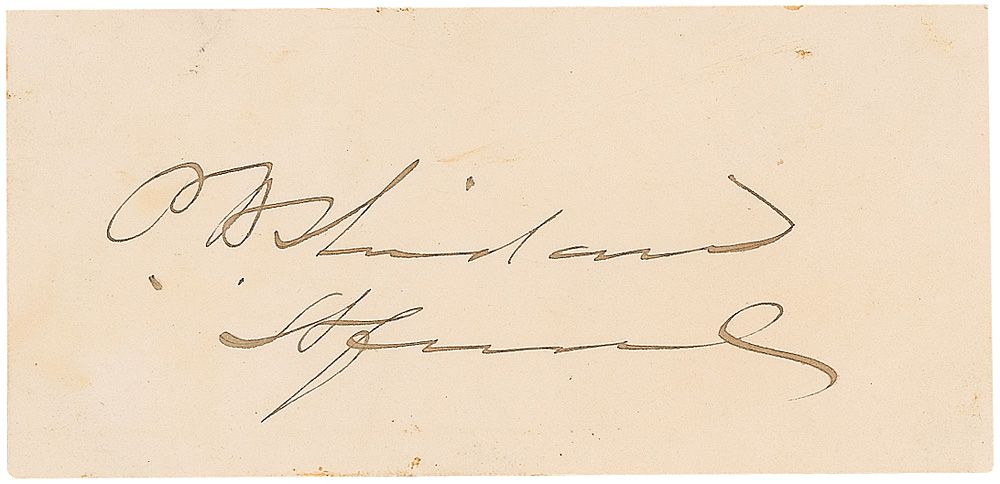 P. H. Sheridan
Lt General